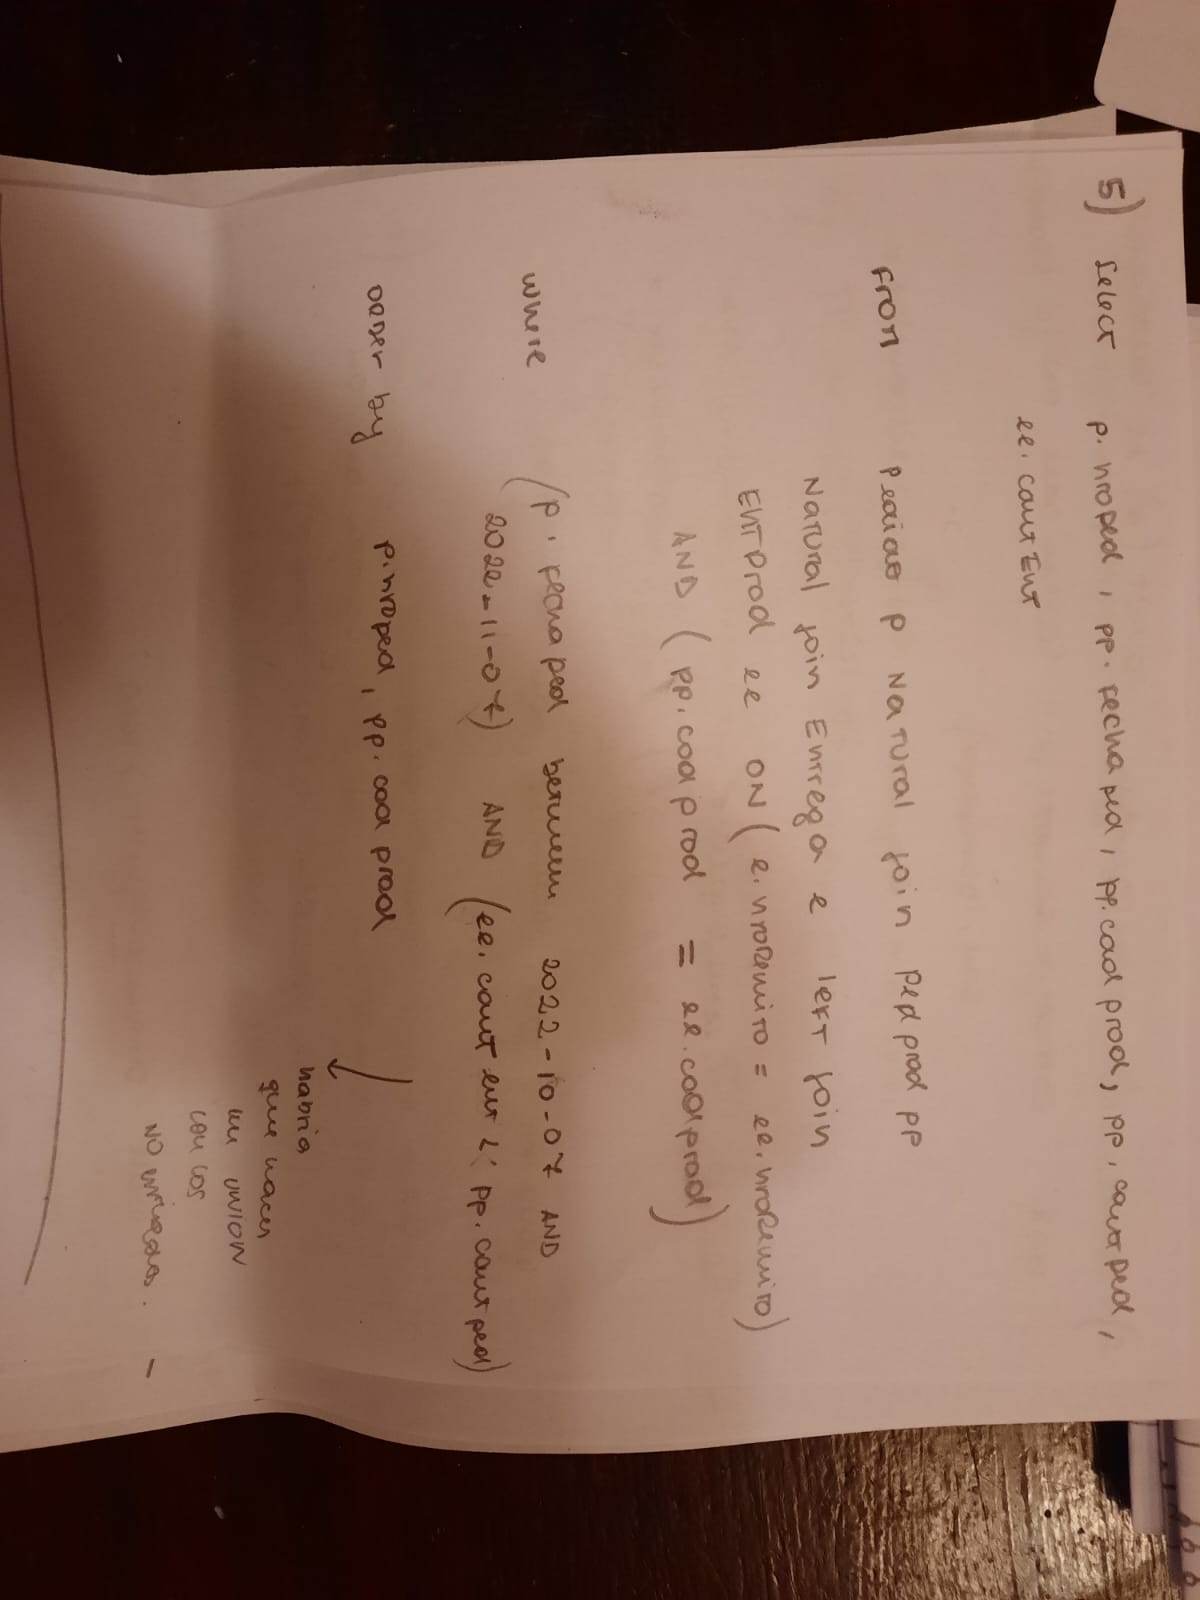 5) Select p.nroped, pp.fechaped, pp.codprod, pp.cantped,
ee.cantEnt
From Pedido p Natural join pedprod pp
Natural join Entrega e left join
EntProd ee ON (e.nroRemito = ee.nroRemito)
AND (pp.codprod = ee.codprod)
where (p.fechaped between 2022-10-07 AND
2022-11-07) AND (ee.cantent < pp.cantped)
order by p.nroped, pp.codprod
habria
que hacer
un union
con los
NO